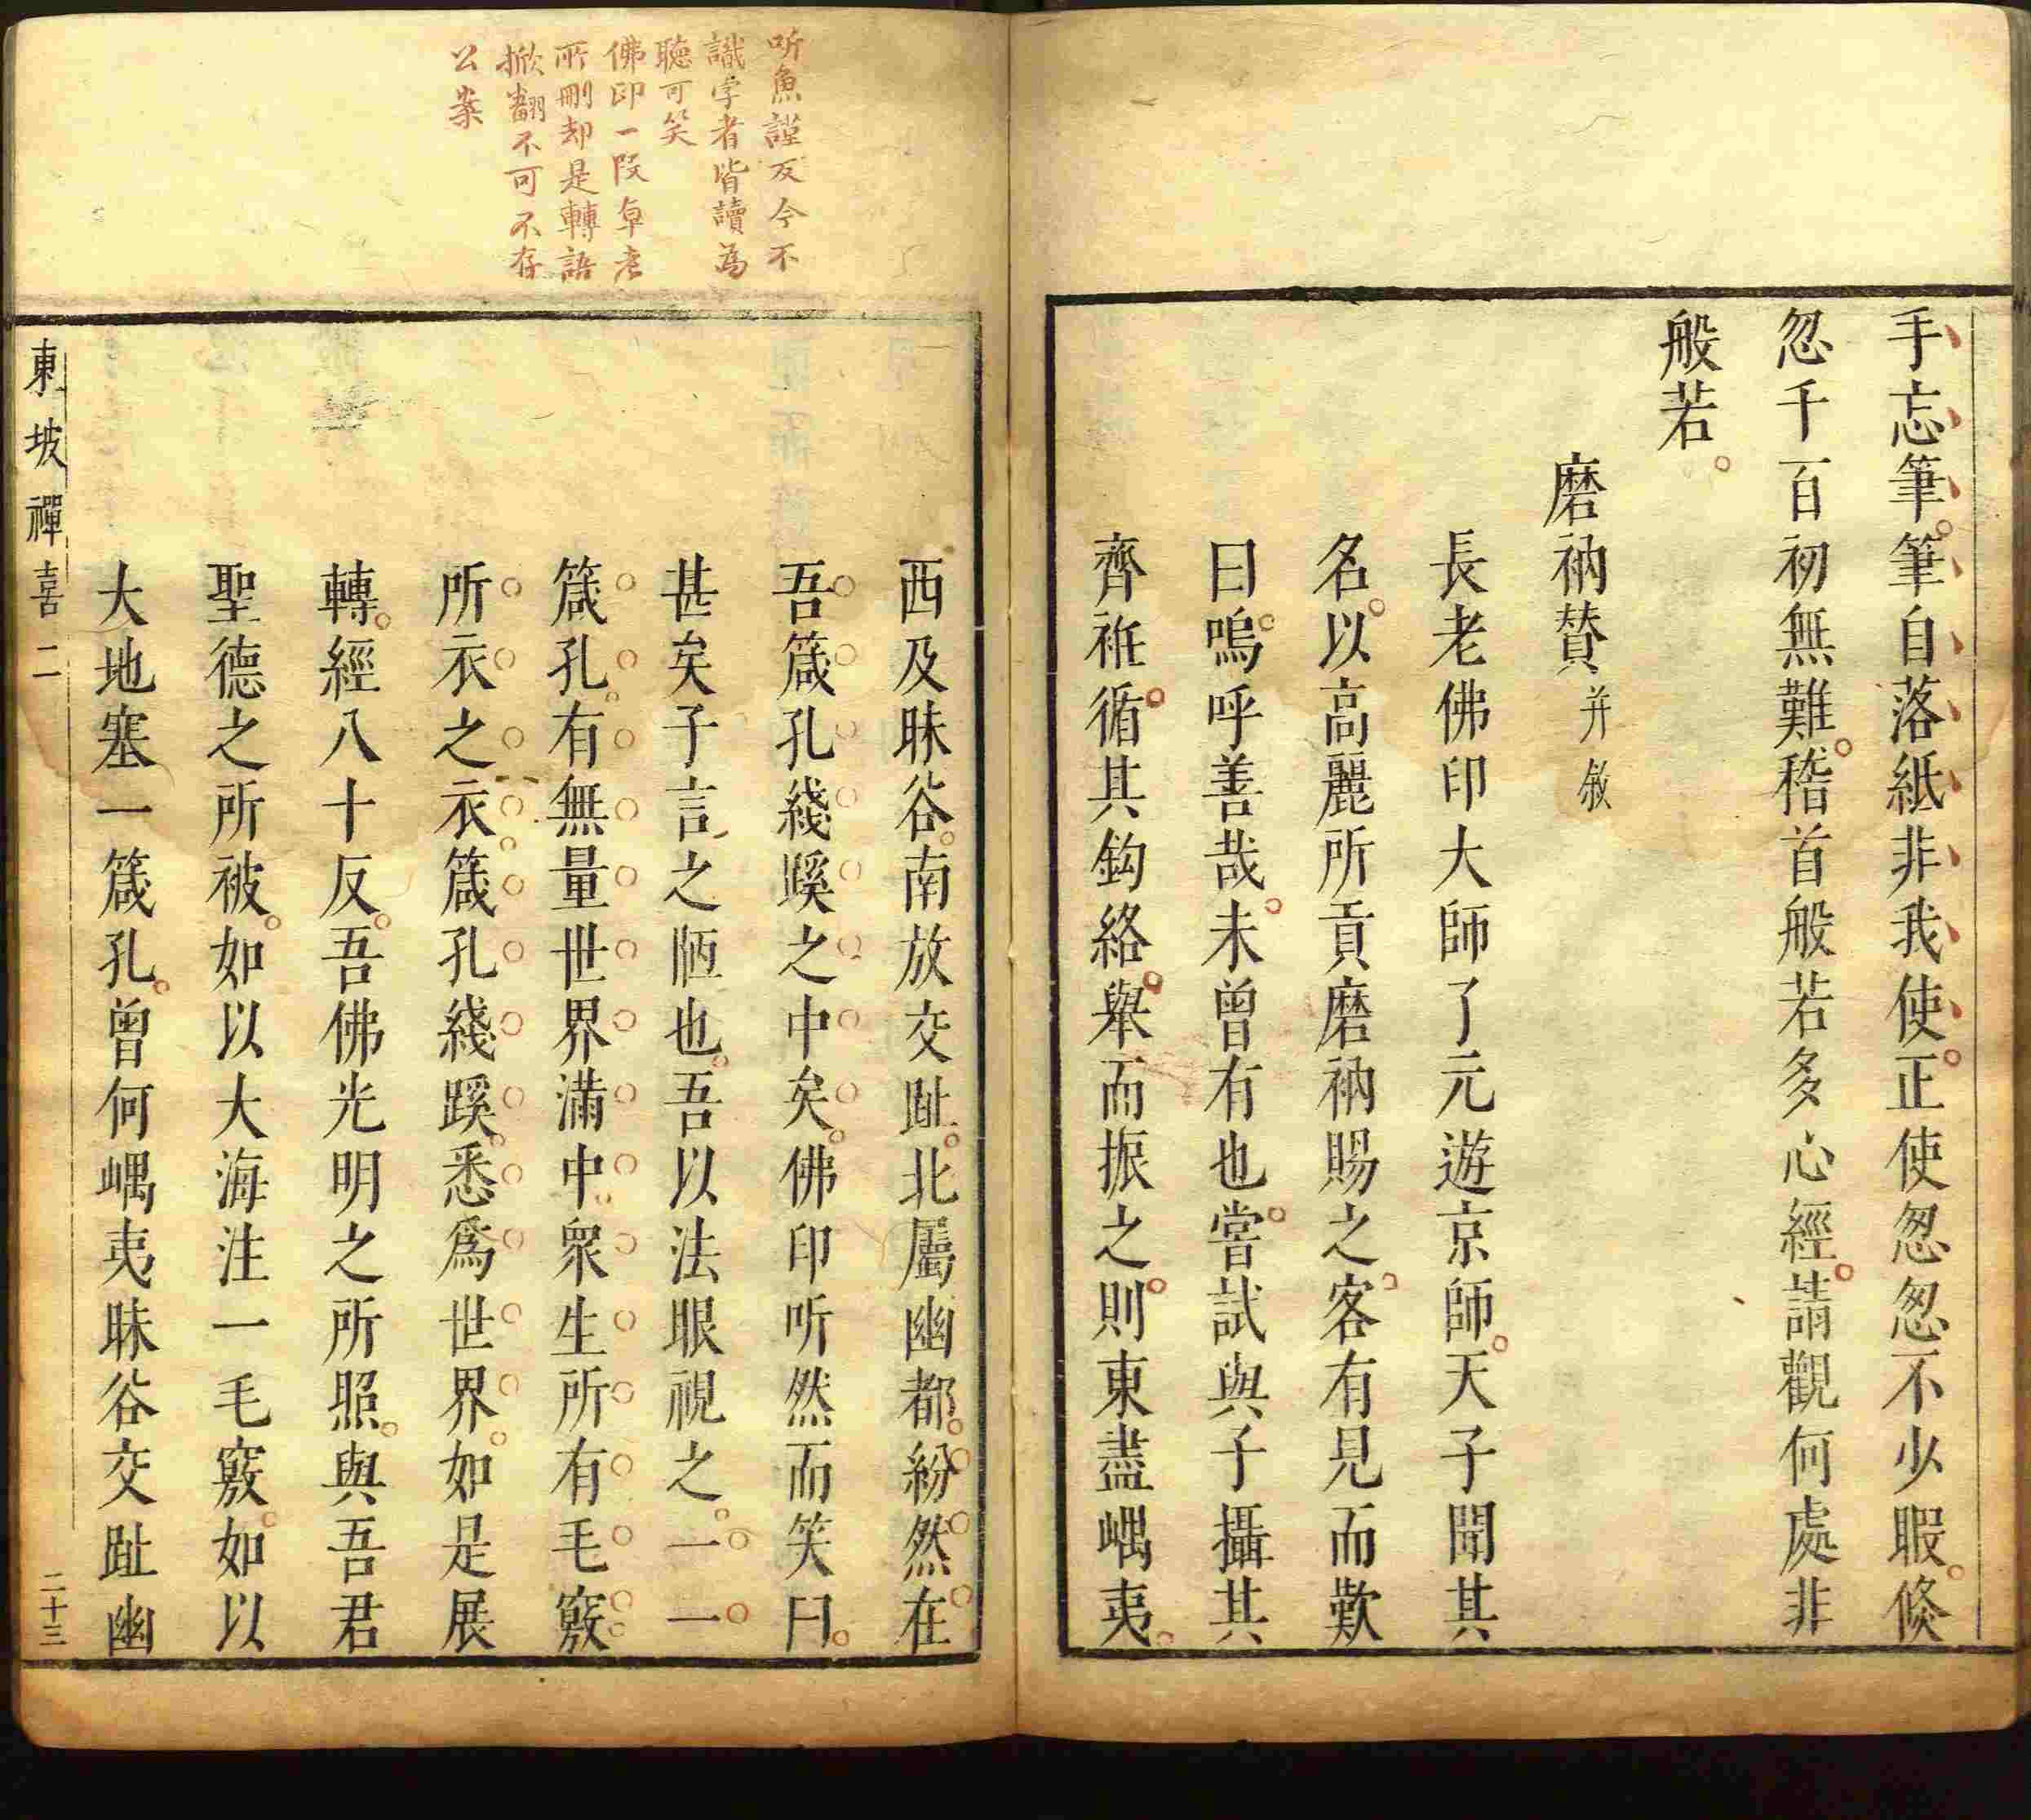 手忘筆筆自落紙非我使正使怱怱不少暇倐
忽千百初無難稽首般若多心經請觀何處非
般若
磨衲贊并敘
長老佛印大師了元遊京師天子聞其
名以高麗所貢磨衲賜之客有見而歎
曰嗚呼善哉未曾有也嘗試與子攝其
齊袵循其鈎絡舉而振之則東盡嵎夷
西及昧谷南放交趾北屬幽都紛然在
吾箴孔綫蹊之中矣佛印听然而笑曰
甚矣子言之陋也吾以法眼視之一一
箴孔有無量世界滿中衆生所有毛竅
所衣之衣箴孔綫蹊悉爲世界如是展
轉經八十反吾佛光明之所照與吾君
聖德之所被如以大海注一毛竅如以
大地塞一箴孔曾何嵎夷昧谷交趾幽
東坡禪喜二
二十三
听魚謹反今不
識字者皆讀為
聽可笑
佛印一段卓老
所刪却是轉語
掀翻不可不存
公案